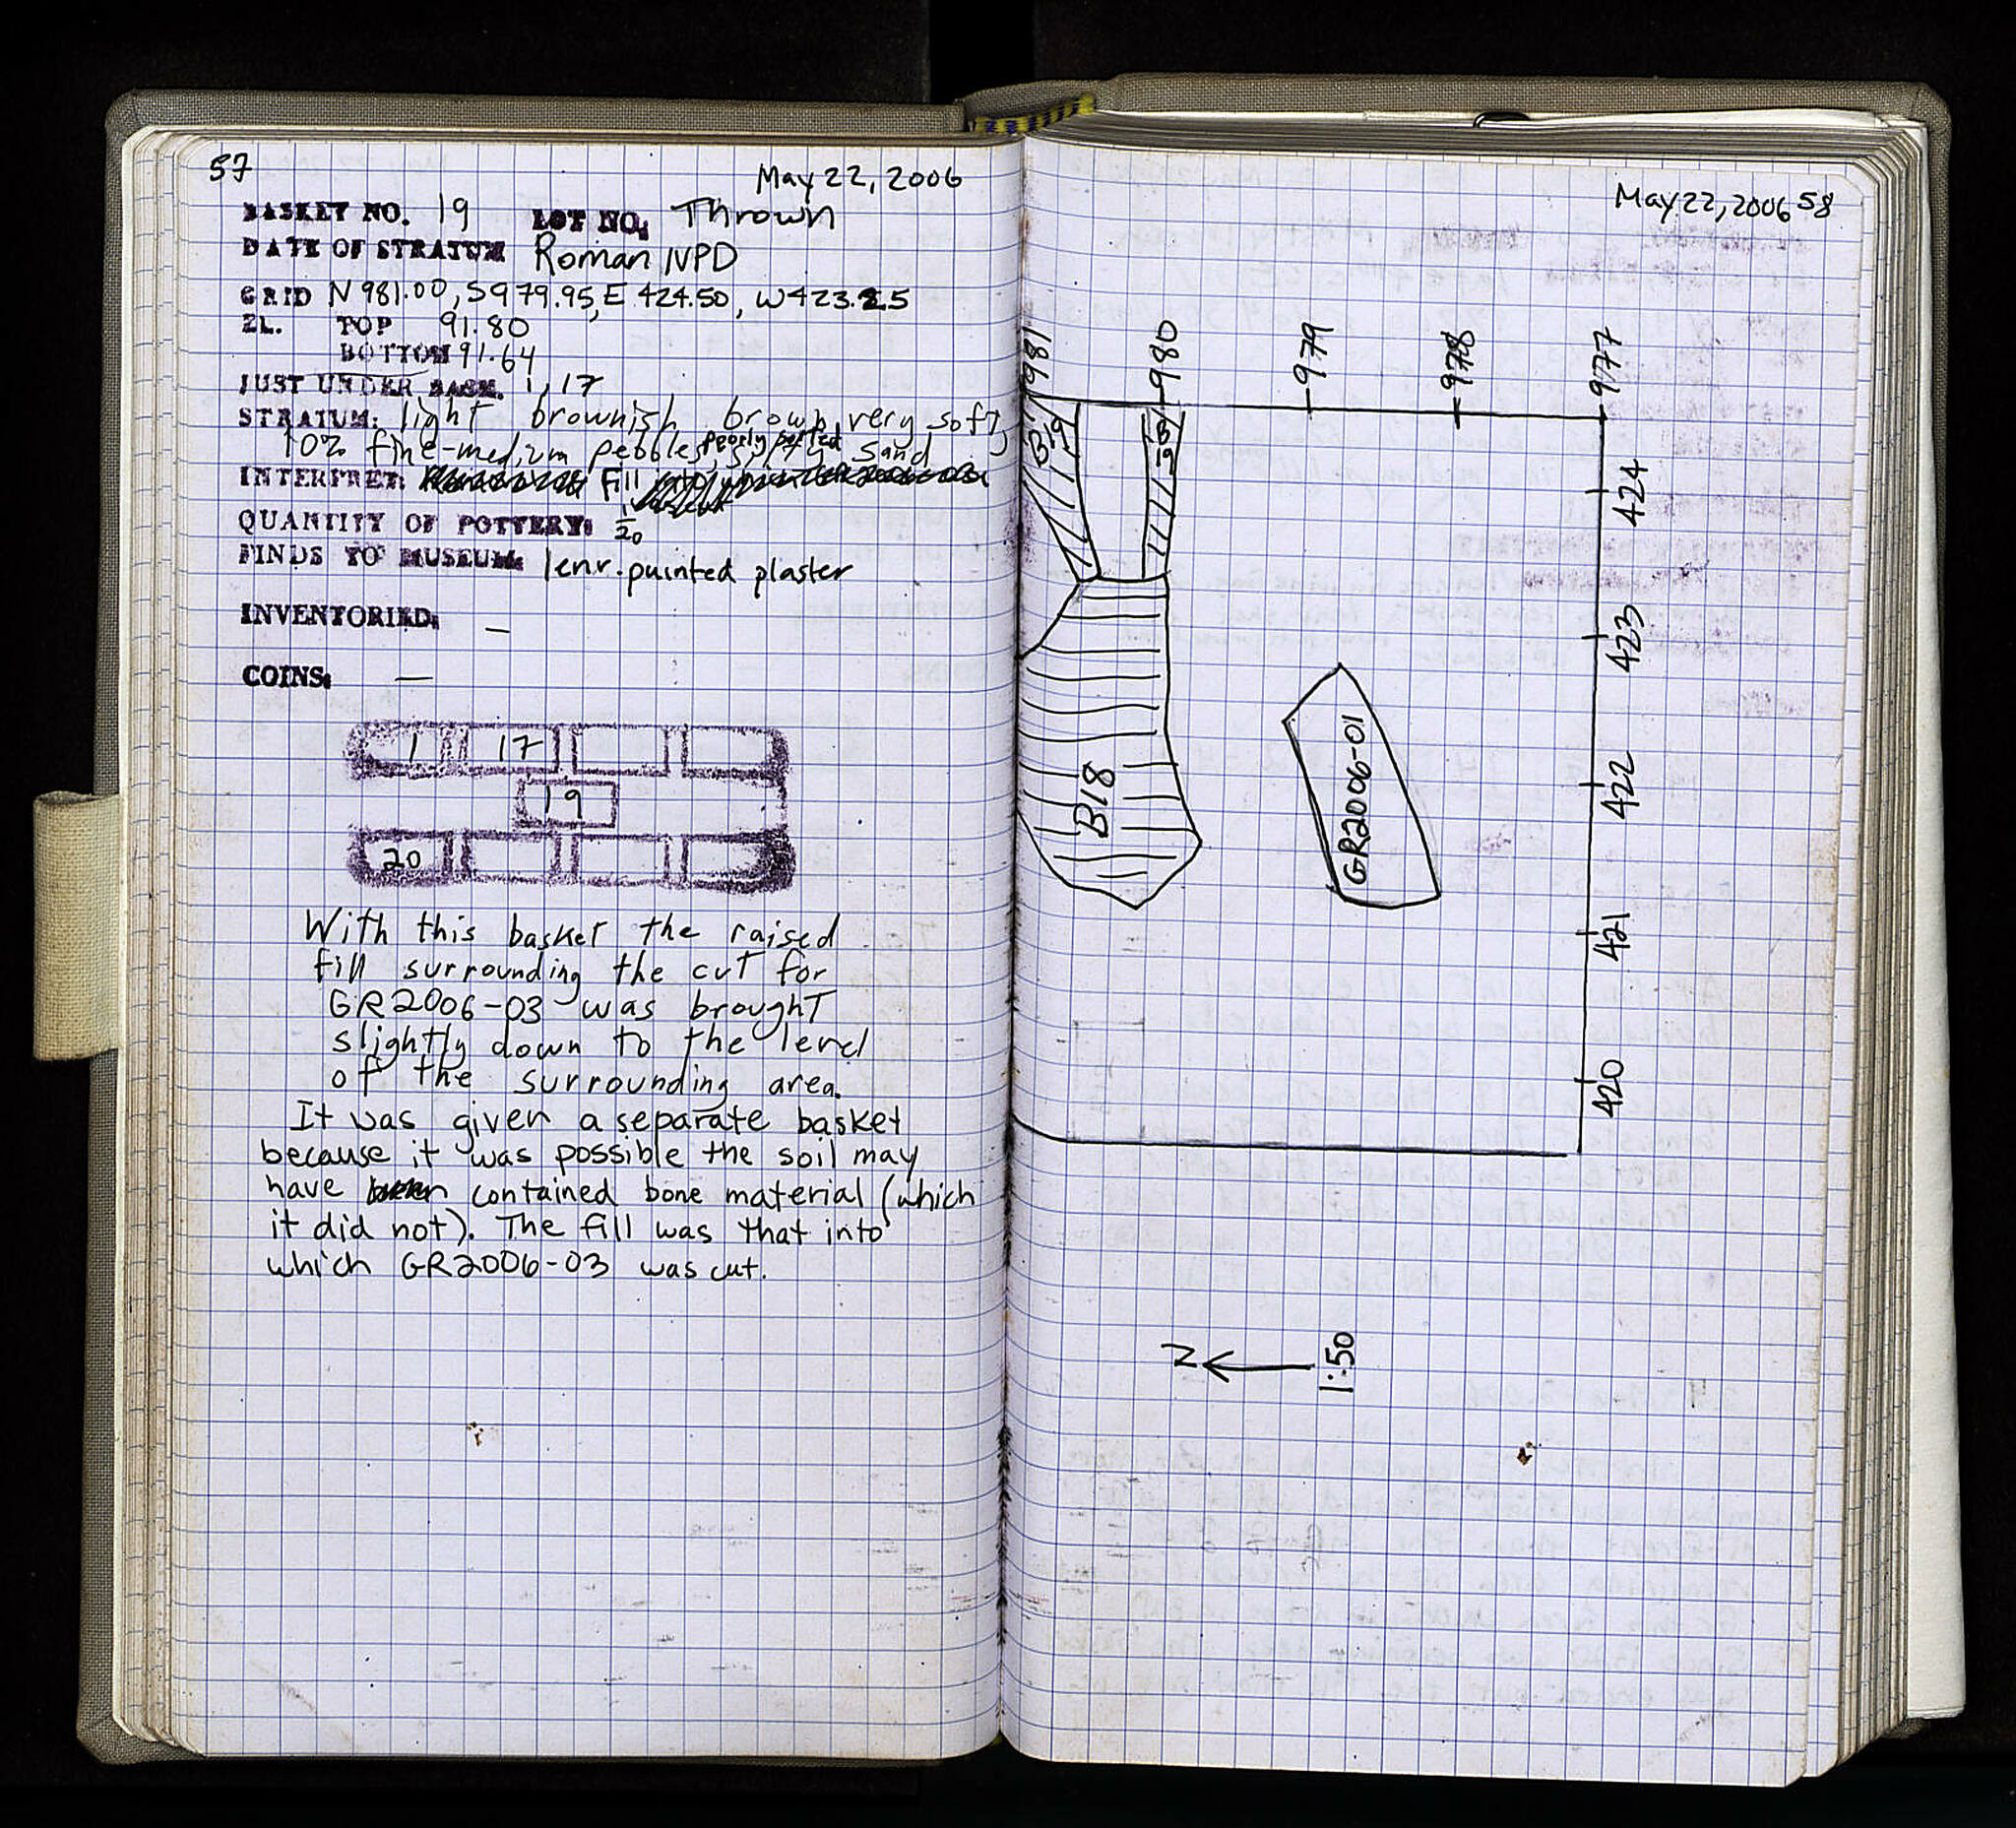 57
May 22, 2006
BASKET NO. 19 LOT NO: Thrown
DATE OF STRATUM Roman NPD
GRID N981.00, S979.95, E 424.50, W423.25
EL. TOP 91.80
BOTTOM 91.64
JUST UNDER BASK. 1, 17
STRATUM: light brownish brown, very soft,
10% fine-medium pebbles, poorly sorted sand
INTERPRET: Fill
QUANTITY OF POTTERY: 1/20
FINDS TO MUSEUM: 1 env. painted plaster
INVENTORIED: —
COINS: —
1 17
19
20
With this basket the raised
fill surrounding the cut for
GR2006-03 was brought
slightly down to the level
of the surrounding area.
It was given a separate basket
because it was possible the soil may
have contained bone material (which
it did not). The fill was that into
which GR2006-03 was cut.
May 22, 2006 58
981
980
979
978
977
B19
B19
424
423
422
421
420
B18
GR2006-01
N
1:50